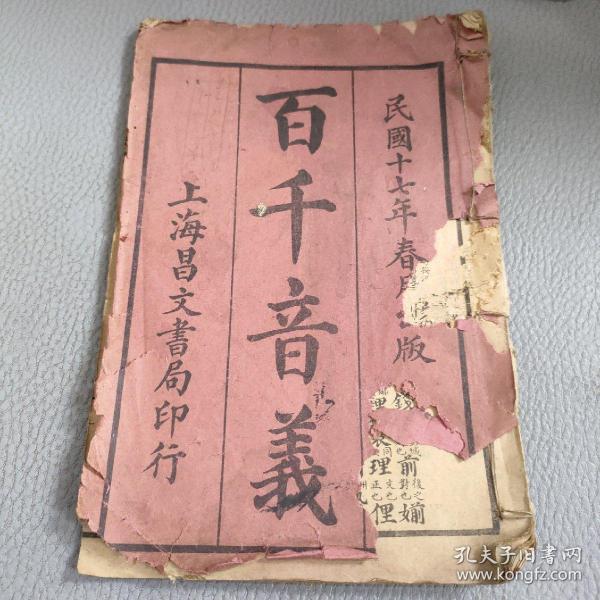 民國十七年春月出版
百千音義
上海昌文書局印行
前 後之對也 媊
理 正也 俚
孔夫子旧书网
www.kongfz.com